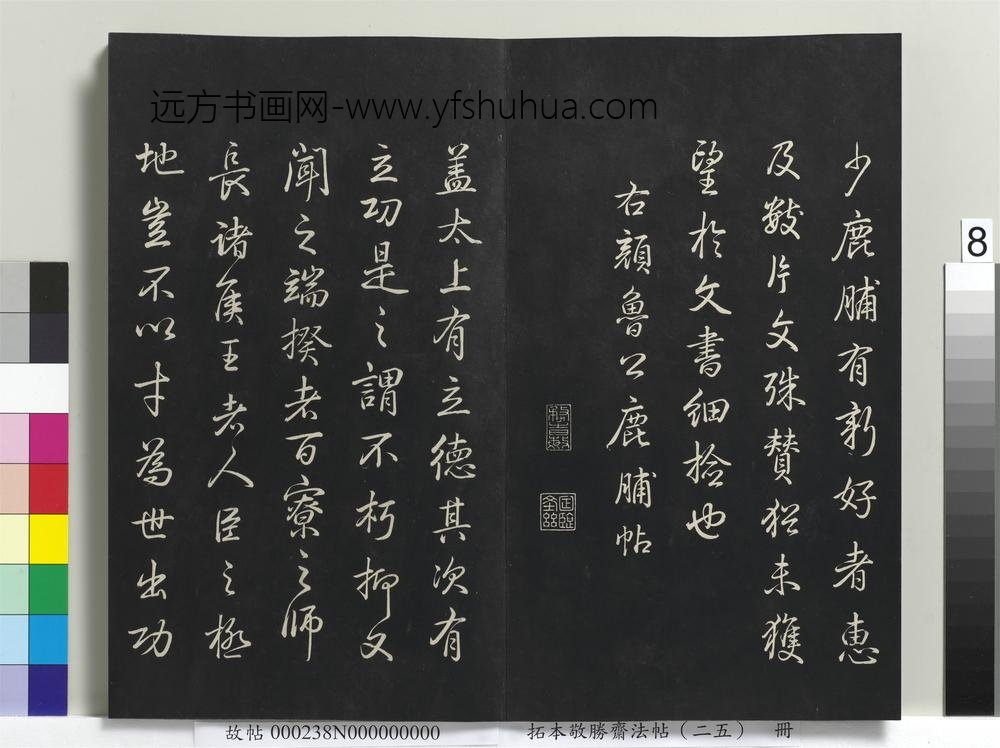 远方书画网-www.yfshuhua.com
少鹿脯有新好者恵
及數片文殊赞猶未獲
望於文書細捡也
右顔魯公鹿脯帖
盖太上有立德其次有
立功是之謂不朽抑又
聞之端揆者百寮之师
長諸侯王者人臣之極
地豈不以才為世出功
8
故帖 000238N000000000
拓本敬勝齋法帖（二五） 冊